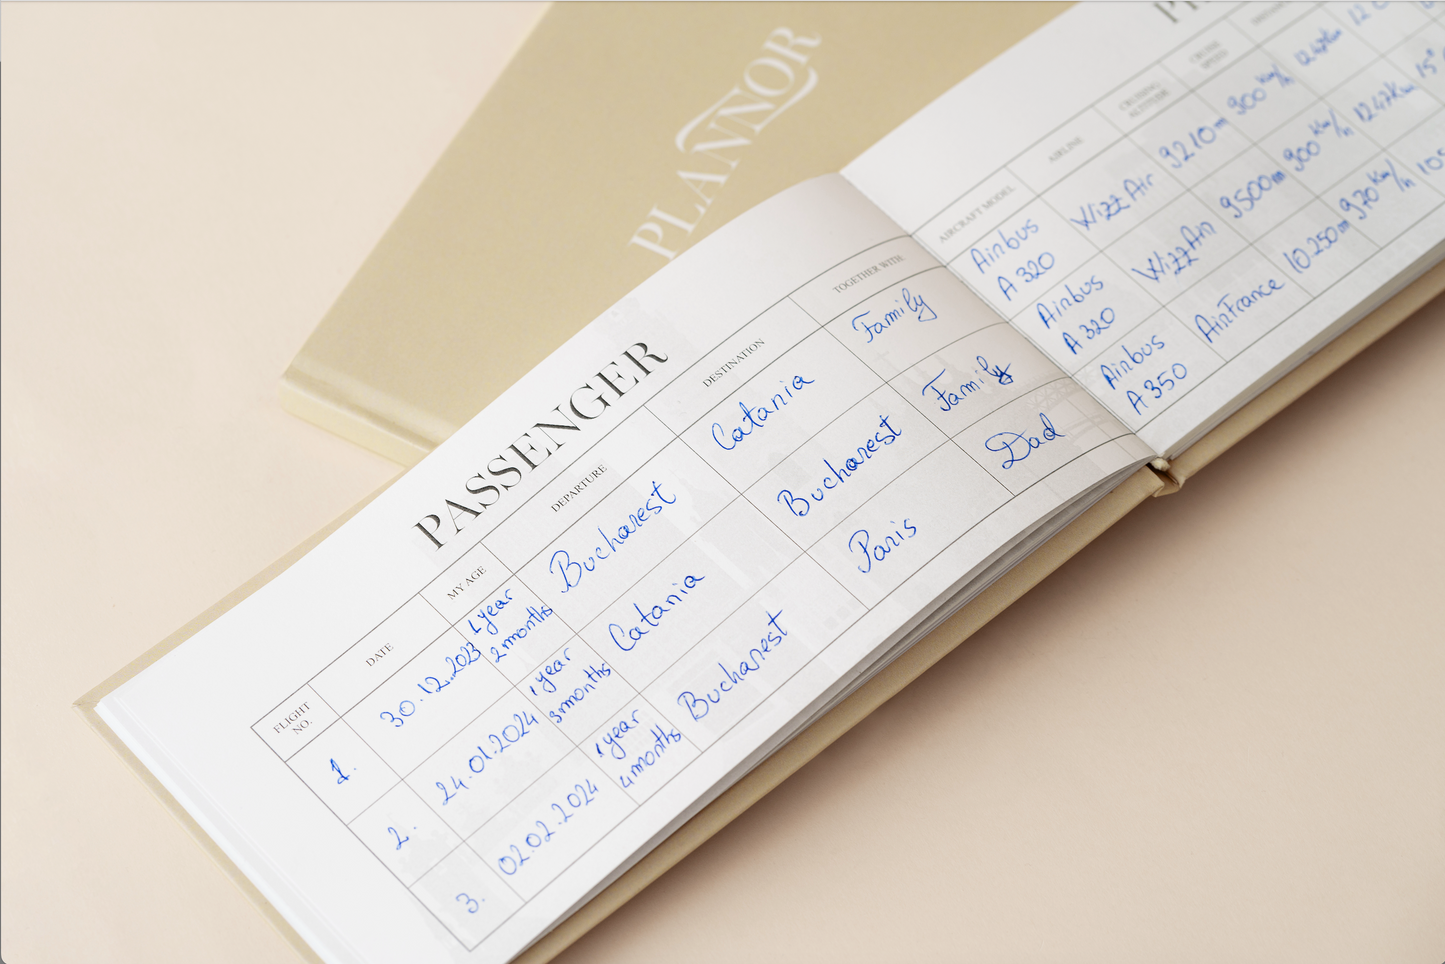 PLANNOR
PASSENGER
FLIGHT NO. DATE MY AGE DEPARTURE DESTINATION TOGETHER WITH
1. 30.12.2023 1 year 2 months Bucharest Catania Family
2. 24.01.2024 1 year 3 months Catania Bucharest Family
3. 02.02.2024 1 year 4 months Bucharest Paris Dad
AIRCRAFT MODEL AIRLINE CRUISING ALTITUDE CRUISE SPEED
Airbus A 320 Wizz Air 9210m 900 km/h
Airbus A 320 Wizz Air 9500m 900 km/h 1247km
Airbus A 350 AirFrance 10.250m 970 km/h